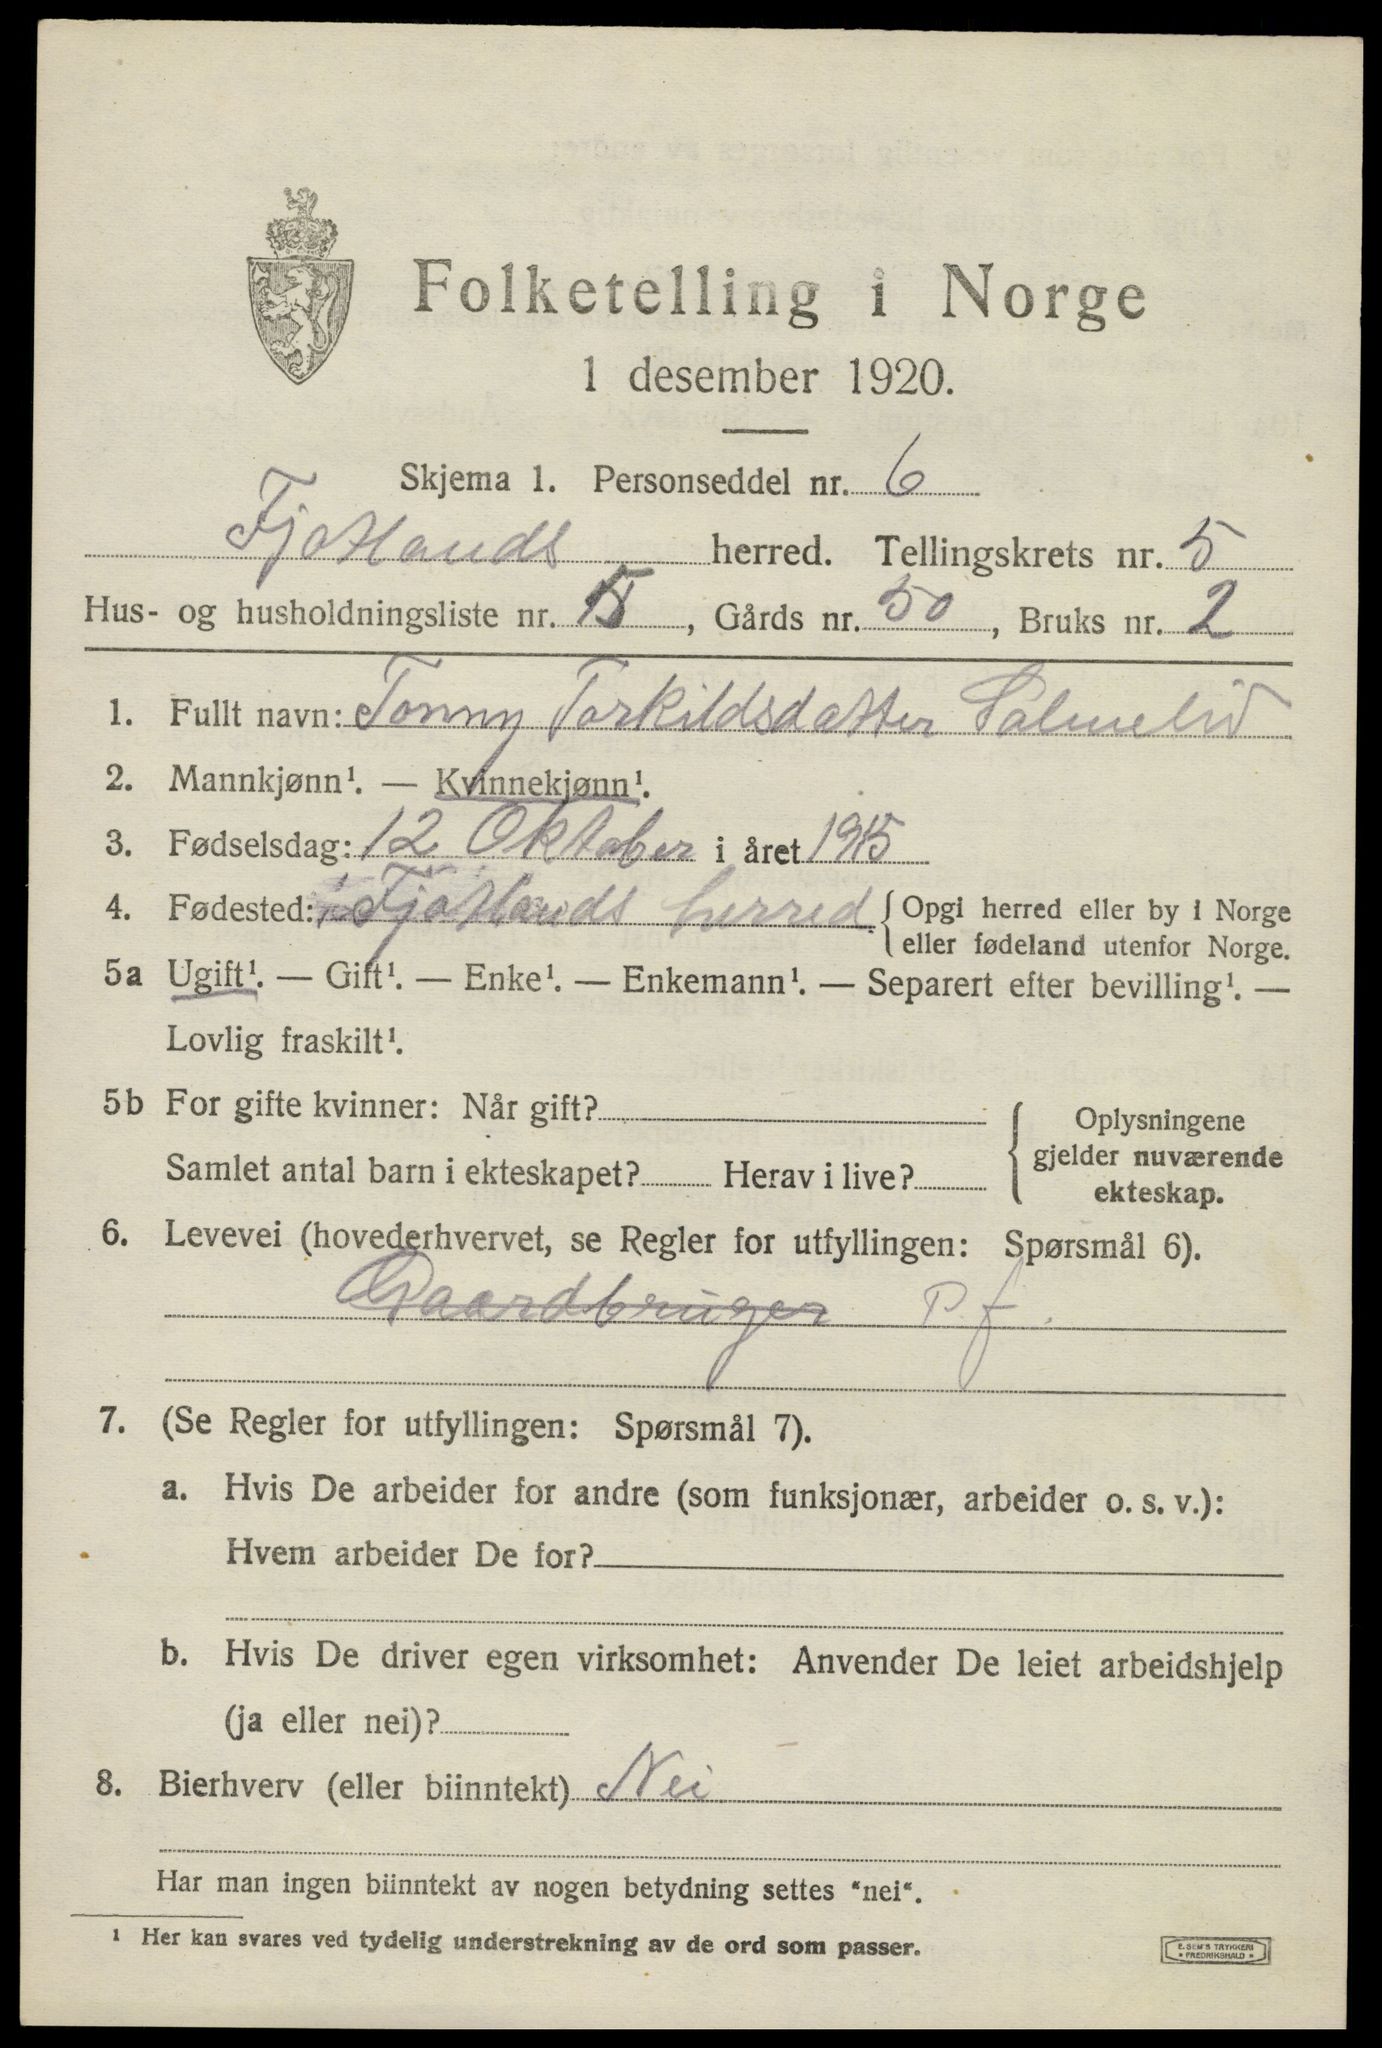 Folketelling i Norge
1 desember 1920.
Skjema 1. Personseddel nr. 6
Fjotlands herred. Tellingskrets nr. 5
Hus- og husholdningsliste nr. , Gårds nr. 50, Bruks nr. 2
1. Fullt navn: Tonny Torkildsdatter Salmelid
2. Mannkjønn¹. — Kvinnekjønn¹.
3. Fødselsdag: 12 Oktober i året 1915
4. Fødested: Fjotlands herred { Opgi herred eller by i Norge
eller fødeland utenfor Norge.
5a Ugift¹. — Gift¹. — Enke¹. — Enkemann¹. — Separert efter bevilling¹. —
Lovlig fraskilt¹.
5b For gifte kvinner: Når gift?
Samlet antal barn i ekteskapet? Herav i live?
{ Oplysningene
gjelder nuværende
ekteskap.
6. Levevei (hovederhvervet, se Regler for utfyllingen: Spørsmål 6).
Gaardbruger P. f.
7. (Se Regler for utfyllingen: Spørsmål 7).
a. Hvis De arbeider for andre (som funksjonær, arbeider o. s. v.):
Hvem arbeider De for?
b. Hvis De driver egen virksomhet: Anvender De leiet arbeidshjelp
(ja eller nei)?
8. Bierhverv (eller biinntekt) Nei
Har man ingen biinntekt av nogen betydning settes "nei".
¹ Her kan svares ved tydelig understrekning av de ord som passer.
E. SEM'S TRYKKERI
* FREDRIKSHALD *